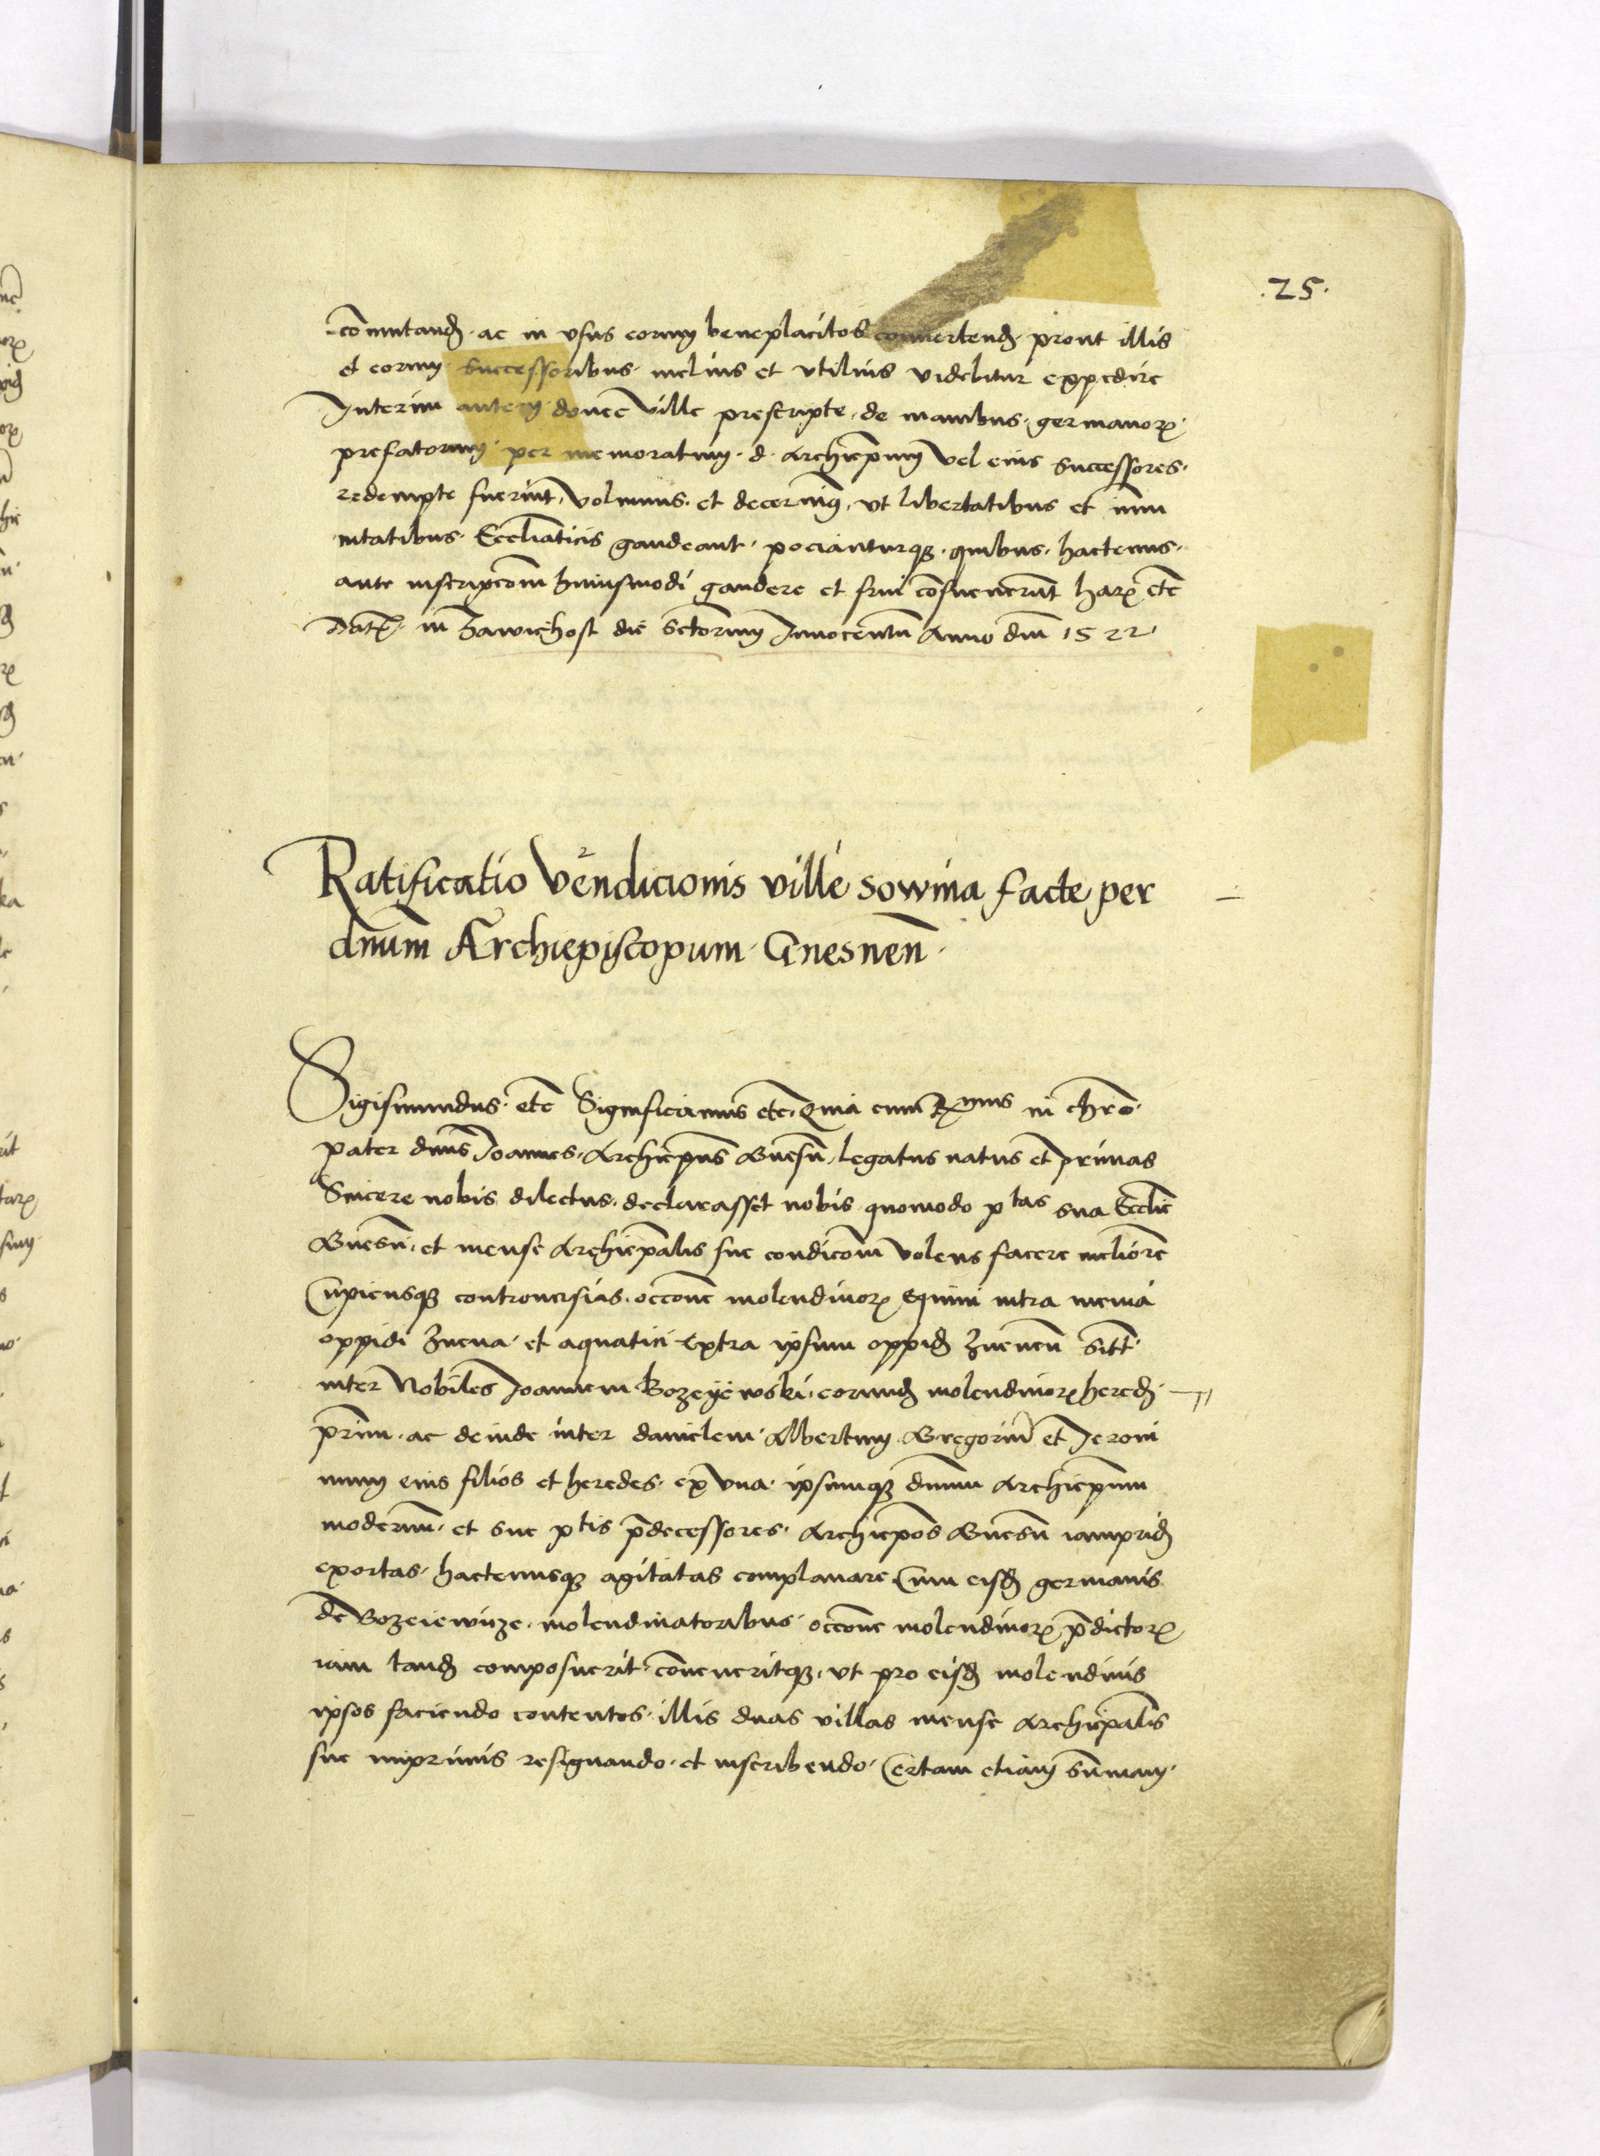 .25.
com̄utand. ac in vsus eorum beneplacitos conuertend. prout illis
et eorum successoribus melius et vtilius videbitur expedire
Interim autem donec ville prescripte, de manibus germanor.
prefatorum per memoratum d. Archiep̄um vel eius successores.
redempte fuerint, volumus et decernim9, vt libertatibus et im̄u
nitatibus Eccl̄iasticis gaudeant. pocianturq3. quibus hactenus.
ante inscripcōm huiusmodi gaudere et frui cōsueuerūt har. etc
Dat. in Zawichost die S̄ctorum Innocentū Anno dn̄i 1522.
Ratificatio Vendicionis ville Sowina facte per
dn̄um Archiepiscopum Gnesnen̄.
Sigismundus etc Significamus etc. Quia cum R mus in chr̄o
pater dn̄us Joannes. Archiep̄us Gnesn̄. legatus natus et primas
Sincere nobis dilectus. declarasset nobis quomodo p tas sua Eccl̄ie
Gnesn̄. et mense Archiep̄alis sue condicōm volens facere meliorē
Cupiensq3 controuersias. occ̄one molendinor. Equini intra menia
oppidi Znena et aquatici extra ipsum oppid. Znenen̄ sitt̄.
inter Nobiles Joannem Bozeyewski. eorund. molendinor. hered.
prim̄. ac deinde inter danielem Albertum Gregoriū et Jeroni
mum eius filios et heredes ex vna. ipsumq3 dn̄um Archiep̄um
modernū. et sue p tis p̄decessores. Archiep̄os Gnesn̄ iamprid.
exortas. hactenusq3 agitatas complanare Cum eisd. germanis
de Bozeiewicze. molendinatoribus occ̄one molendinor. p̄dictor.
iam tand. composuerit. cōueneritq3. vt pro eisd. molendinis
ipsos faciendo contentos. illis duas villas mense Archiep̄alis
sue imprimis resignando. et inscribendo. Certam etiam sūmam.